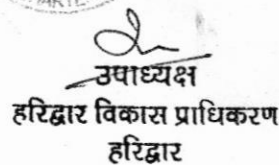 उपाध्यक्ष
हरिद्वार विकास प्राधिकरण
हरिद्वार